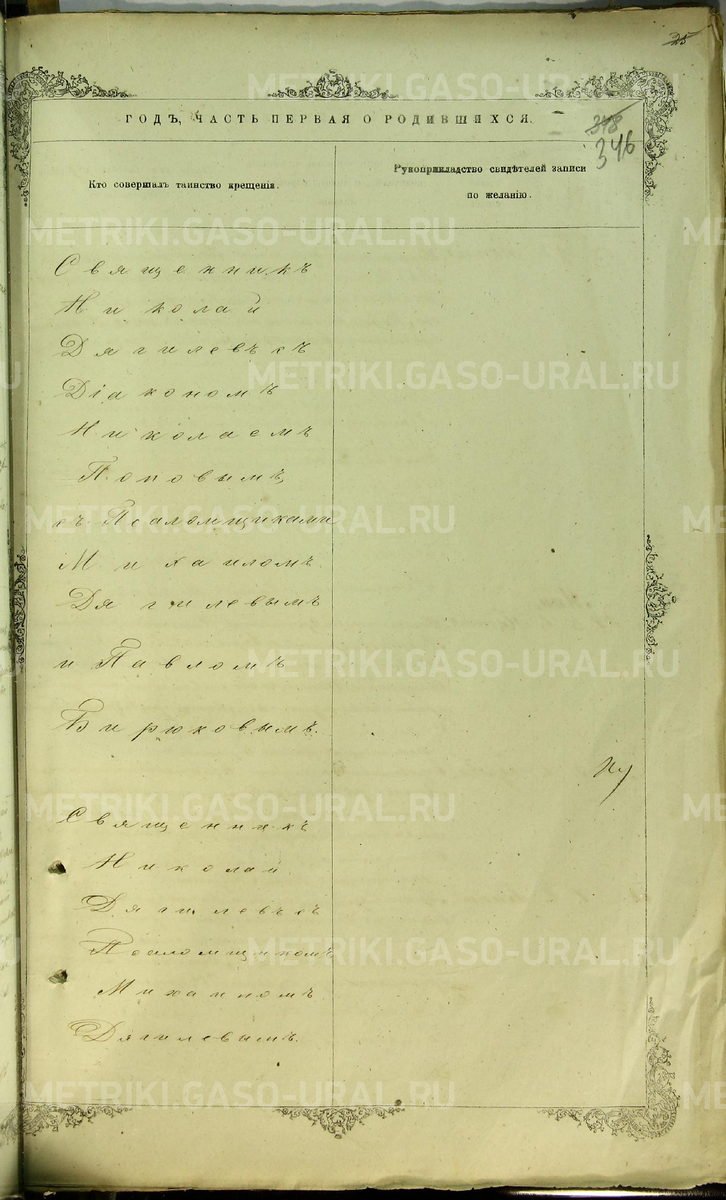 25
ГОДЪ, ЧАСТЬ ПЕРВАЯ О РОДИВШИХСЯ.
318
346
Кто совершалъ таинство крещенія.
Рукоприкладство свидѣтелей записи
по желанію.
Священникъ
Николай
Дягилевъ съ
Діакономъ
Николаемъ
Поповымъ,
съ Псаломщиками
Михаиломъ
Дягилевымъ
и Павломъ
Бирюковымъ.
Священникъ
Николай
Дягилевъ съ
Псаломщикомъ
Михаиломъ
Дягилевымъ.
METRIKI.GASO-URAL.RU